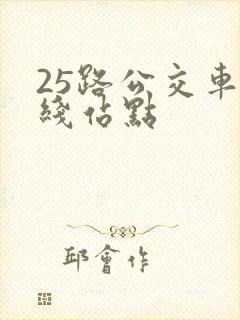 25路公交車
綫佔點
邱會作